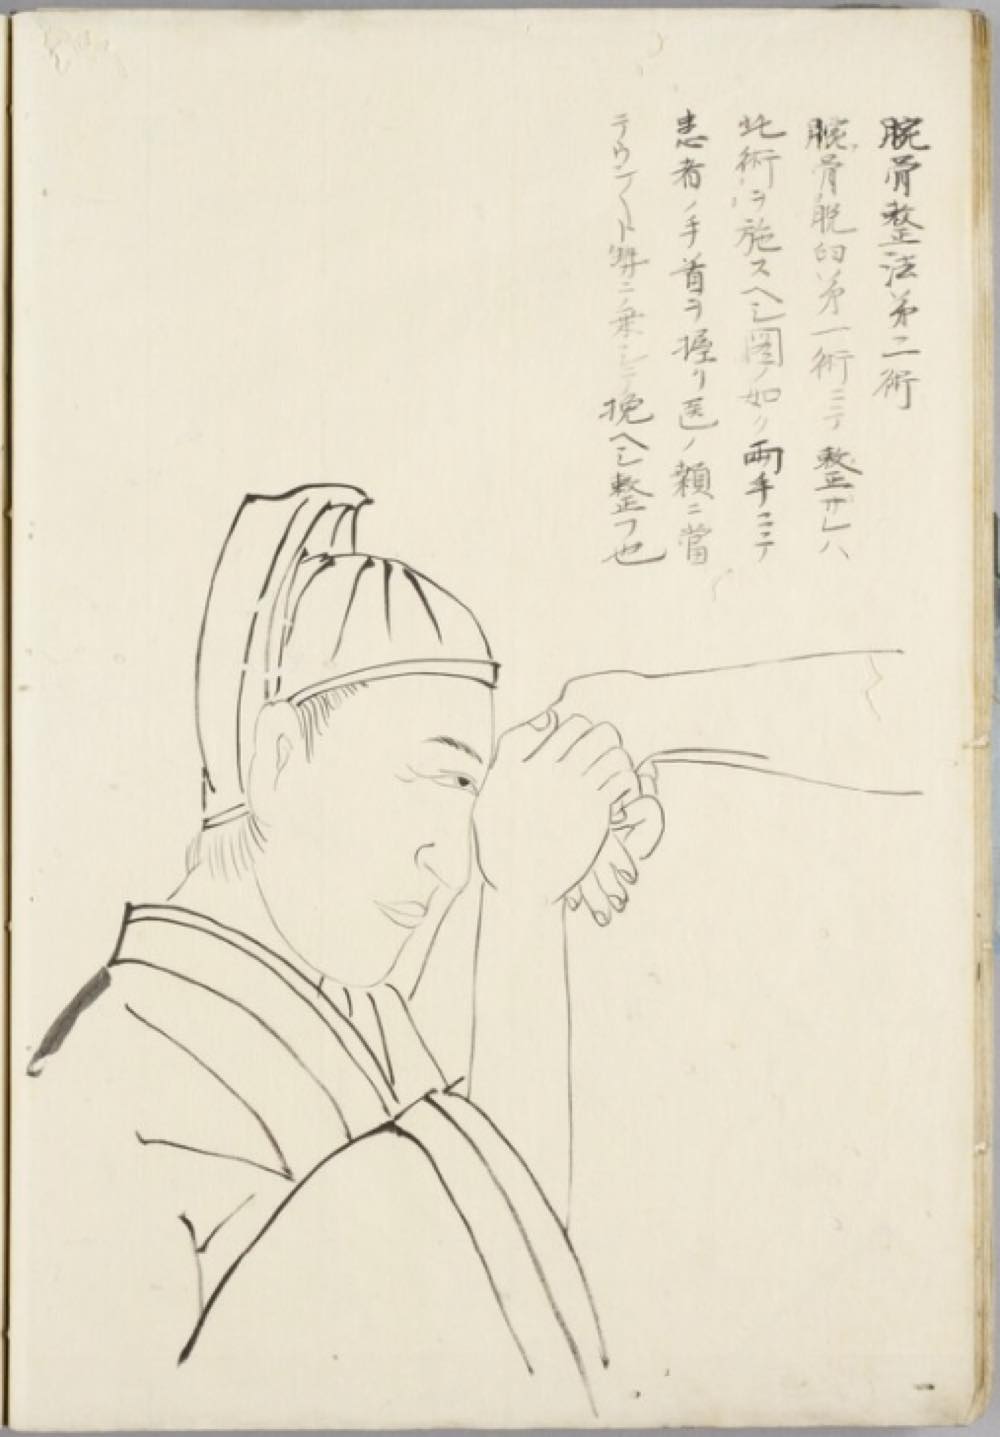 腕骨整法第二術
腕骨脱臼第一術ニテ整ザレハ
此術ヲ施スヘシ圖ノ如ク両手ニテ
患者ノ手首ヲ握リ医ノ額ニ當
テウンノト ニ乗シテ挽ヘシ整フ也